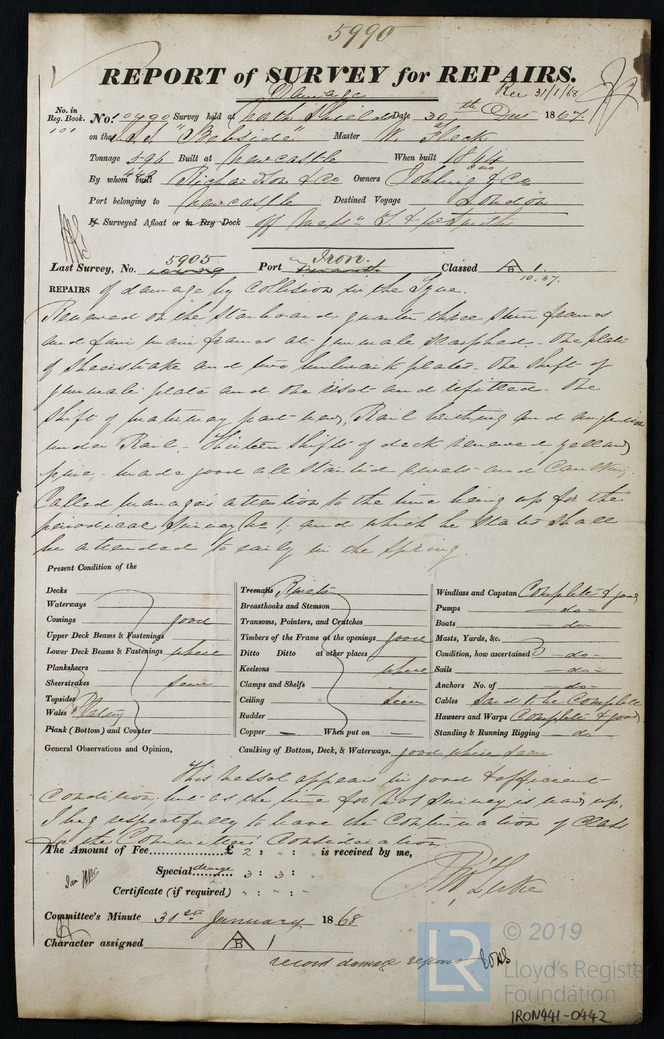 5990
REPORT of SURVEY for REPAIRS.
Damage
Rec 31/1/68
No. in Reg. Book. No. 10490 Survey held at North Shields Date 30th Dec 1867
101 on the S.S. "Bebside" Master W. Fleck
Tonnage 594 Built at Newcastle When built 1864
By whom built Richardson & Co Owners Jobling & Co
Port belonging to Newcastle Destined Voyage London
If Surveyed Afloat or in Dry Dock off Messrs T & W Smith
Last Survey, No. 5905 Port Iron. Classed A B 1.
10.67.
REPAIRS of damage by Collision in the Tyne.
Renewed on the Starboard quarter three stern frames
and four main frames at gunwale scarphed - The plate
of Sheerstrake and two bulwark plates. The shift of
gunwale plate and the rest and refitted - The
shift of waterway part new, Rail birthing and angle iron
under Rail - Thirteen shifts of deck renewed, yellow
pine, - made good all started rivets and Caulking.
Called managers attention to the time being up for the
periodical Survey No 1, and which he States shall
be attended to early in the Spring.
Present Condition of the
Decks
Waterways
Comings good
Upper Deck Beams & Fastenings
Lower Deck Beams & Fastenings where
Planksheers
Sheerstrakes seen
Topsides
Wales Plating
Plank (Bottom) and Counter
Treenails Rivets
Breasthooks and Stemson
Transoms, Pointers, and Crutches
Timbers of the Frame at the openings good
Ditto Ditto at other places
Keelsons where
Clamps and Shelfs
Ceiling seen
Rudder
Copper — When put on —
Windlass and Capstan Complete & good
Pumps - do -
Boats - do -
Masts, Yards, &c.
Condition, how ascertained - do -
Sails - do -
Anchors No. of - do -
Cables Said to be Complete
Hawsers and Warps Complete & good
Standing & Running Rigging - do -
General Observations and Opinion, Caulking of Bottom, Deck, & Waterways. good where seen
This vessel appears in good & efficient
Condition, but as the time for No 1 Survey is now up,
I beg respectfully to leave the Continuation of Class
for the Committees Consideration.
The Amount of Fee............... £ 2 : : is received by me,
Special damage 3 : 3 :
Certificate (if required) : :
Committee's Minute 31st January 1868
Character assigned A B 1
record damage repairs
© 2019
LR
Lloyd's Register
Foundation
IRON441-0442